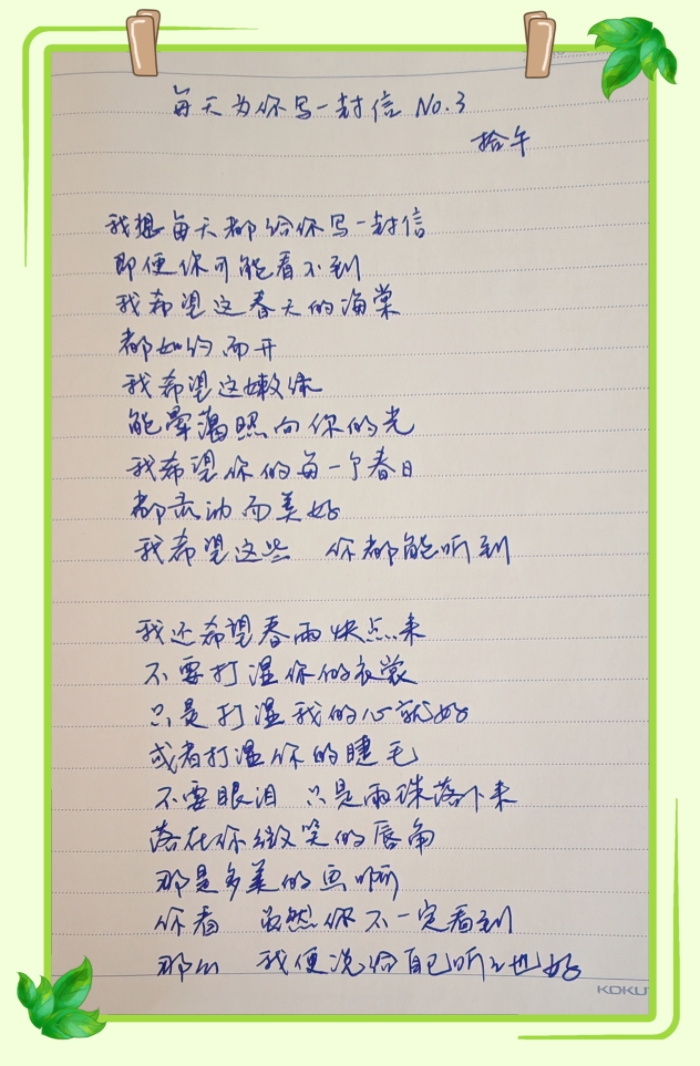 每天为你写一封信 No.3
拾午
我想每天都给你写一封信
即便你可能看不到
我希望这春天的海棠
都如约而开
我希望这嫩绿
能晕荡照向你的光
我希望你的每一个春日
都灵动而美好
我希望这些 你都能听到
我还希望春雨快点来
不要打湿你的衣裳
只是打湿我的心就好
或者打湿你的睫毛
不要眼泪 只是雨珠落下来
落在你微笑的唇角
那是多美的画啊
你看 虽然你不一定看到
那么 我便说给自己听听也好
KOKU